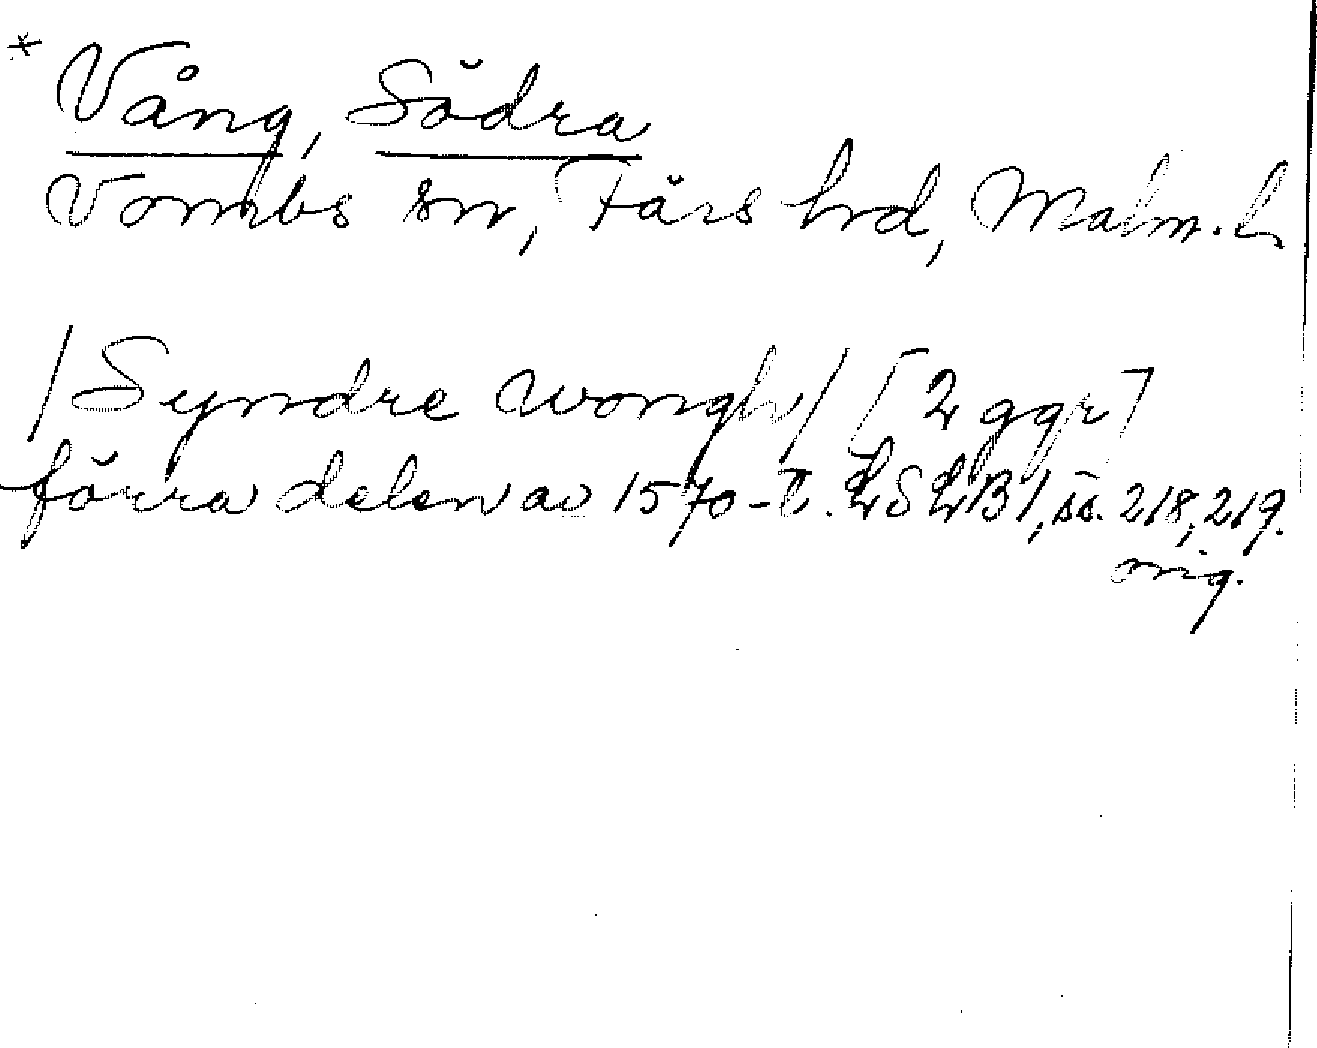 * Vång, Södra
Vombs sn, Färs hrd, Malm. l.
/Syndre wongh/ [2 ggr]
förra delen av 1570-t. LSLB 1, ss. 218, 219.
orig.